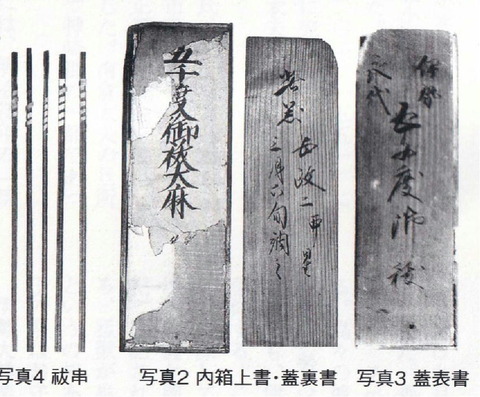 伊勢
永代
五千度御祓
安政二
三月下旬調之
五千度御祓大麻
写真4 祓串
写真2 内箱上書・蓋裏書
写真3 蓋表書